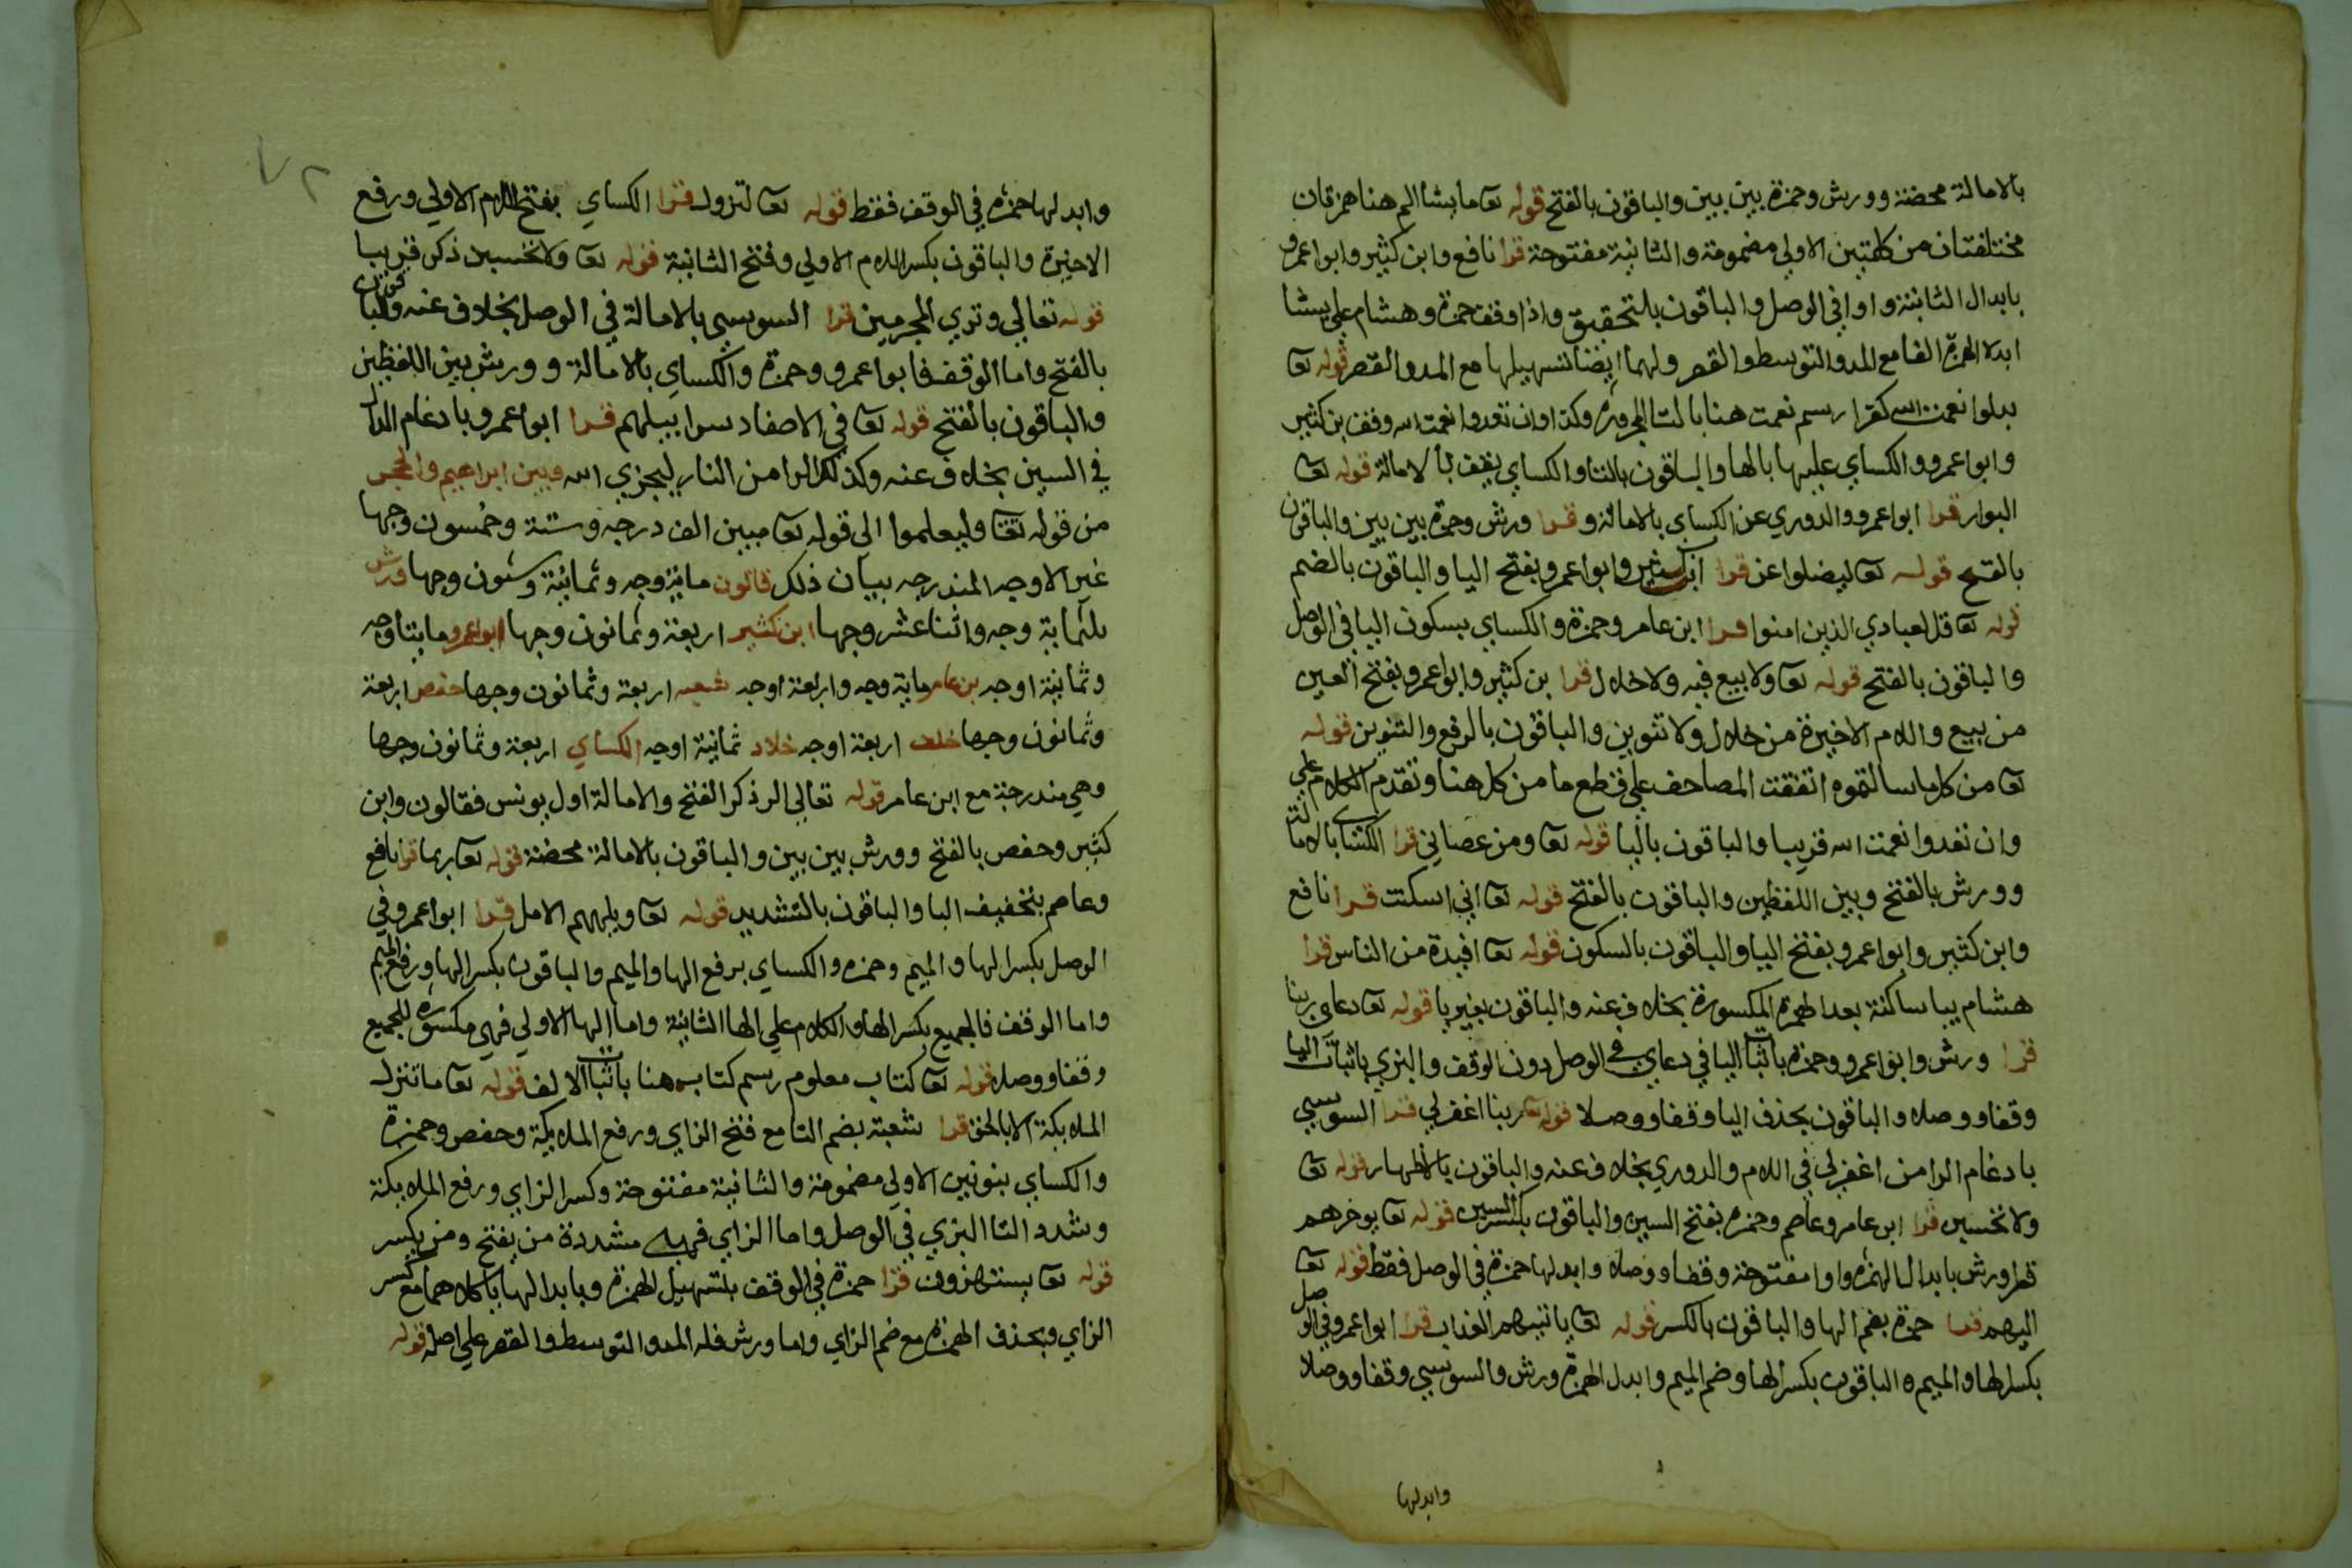 بالامالة محضة وورش وحمزة بين بين والباقون بالفتح قوله تعا ما يشا الم هنا همزتان
مختلفتان من كلمتين الاولي مضمومة والثانية مفتوحة قرا نافع وابن كثير وابواعمرو
بابدال الثانية واوا في الوصل والباقون بالتحقيق واذا وقف حمزة وهشام علي يشا
ابدلا الهمزة الفا مع المد والتوسط والقصر ولهما ايضا تسهيلها مع المد والقصر قوله تعا
بدلوا نعمت الله كفرا رسم نعمت هنا بالتا المجرورة وكذا وان تعدوا نعمت الله وقف بن كثير
وابواعمرو والكساي عليها بالها والباقون بالتا والكساي يقف بالامالة قوله تعا
البوار قرا ابواعمرو والدوري عن الكساي بالامالة وقرا ورش وحمزة بين بين والباقون
بالفتح قوله تعا ليضلوا عن قرا ابن كثير وابواعمرو بفتح اليا والباقون بالضم
قوله تعا قل لعبادي الذين امنوا قرا ابن عامر وحمزة والكساي بسكون اليا في الوصل
والباقون بالفتح قوله تعا ولا بيع فيه ولا خلال قرا بن كثير وابواعمرو بفتح العين
من بيع واللام الاخيرة من خلال ولا تنوين والباقون بالرفع والتنوين قوله
تعا من كل ما سالتموه اتفقت المصاحف علي قطع ما من كل هنا وتقدم الكلام علي
وان تعدوا نعمت الله قريبا والباقون باليا قوله تعا ومن عصاني قرا الكساي بالامالة
وورش بالفتح وبين اللفظين والباقون بالفتح قوله تعا اني اسكنت قرا نافع
وابن كثير وابواعمرو بفتح اليا والباقون بالسكون قوله تعا افيدة من الناس قرا
هشام بيا ساكنة بعد الهمزة المكسورة بخلاف عنه والباقون بغير يا قوله تعا دعاي ربنا
قرا ورش وابواعمرو وحمزة باثبات اليا في دعاي في الوصل دون الوقف والبزي باثبات اليا
وقفا ووصلا والباقون بحذف اليا وقفا ووصلا قوله تعا ربنا اغفرلي قرا السوسي
بادغام الرا من اغفرلي في اللام والدوري بخلاف عنه والباقون بالاظهار قوله تعا
ولا تحسبن قرا ابن عامر وعاصم وحمزة بفتح السين والباقون بكسر السين قوله تعا يوخرهم
قرا ورش بابدال الهمزة واوا مفتوحة وقفا ووصلا وابدلها حمزة في الوصل فقط قوله تعا
اليهم قرا حمزة بضم الها والباقون بالكسر قوله تعا ياتيهم العذاب قرا ابواعمرو في الوصل
بكسر الها والميم ه الباقون بكسر الها وضم الميم وابدل الهمزة ورش والسوسي وقفا ووصلا
وابدلها
وابدلها حمزه في الوقف فقط قوله تعا لتزول قرا الكساي بفتح اللام الاولي ورفع
الاخيرة والباقون بكسر اللام الاولي وفتح الثانية قوله تعا ولا تحسبن ذكر قريبا
قوله تعالي وتري المجرمين قرا السوسي بالامالة في الوصل بخلاف عنه والباقون
بالفتح واما الوقف فابواعمرو وحمزة والكساي بالامالة وورش بين اللفظين
والباقون بالفتح قوله تعا في الاصفاد سرابيلهم قرا ابواعمرو بادغام الدال
في السين بخلاف عنه وكذلك الرا من النار ليجزي الله وبين ابراهيم والحجر
من قوله تعا وليعلموا الي قوله تعا مبين الف درجه وستة وخمسون وجها
غير الاوجه المندرجه بيان ذلك قالون ماية وجه وثمانية وستون وجها ورش
ثلثماية وجه واثنا عشر وجها ابن كثير اربعة وثمانون وجها ابواعمرو مايتا وجه
وثمانية اوجه بن عامر ماية وجه واربعة اوجه شعبه اربعة وثمانون وجها حفص اربعة
وثمانون وجها خلف اربعة اوجه خلاد ثمانية اوجه الكساي اربعة وثمانون وجها
وهي مندرجة مع ابن عامر قوله تعالي الر ذكر الفتح والامالة اول يونس فقالون وابن
كثير وحفص بالفتح وورش بين بين والباقون بالامالة محضة قوله تعا ربما قرا نافع
وعاصم بتخفيف البا والباقون بالتشديد قوله تعا ويلههم الامل قرا ابواعمرو في
الوصل بكسر الها والميم وحمزه والكساي برفع الها والميم والباقون بكسر الها ورفع الميم
واما الوقف فالجميع بكسر الها والكلام علي الها الثانية واما الها الاولي فهي مكسورة للجميع
وقفا ووصلا قوله تعا كتاب معلوم رسم كتاب هنا باثبات الالف قوله تعا ما تنزل
الملايكة الا بالحق قرا شعبة بضم التا مع فتح الزاي ورفع الملايكة وحفص وحمزة
والكساي بنونين الاولي مضمومة والثانية مفتوحة وكسر الزاي ورفع الملايكة
وشدد التا البزي في الوصل واما الزاي فهي مشددة من يفتح ومن يكسر
قوله تعا يستهزون قرا حمزة في الوقف بتسهيل الهمزة وبابدالها يا كلاهما مع كسر
الزاي وبحذف الهمزة مع ضم الزاي واما ورش فله المد والتوسط والقصر علي اصله قوله